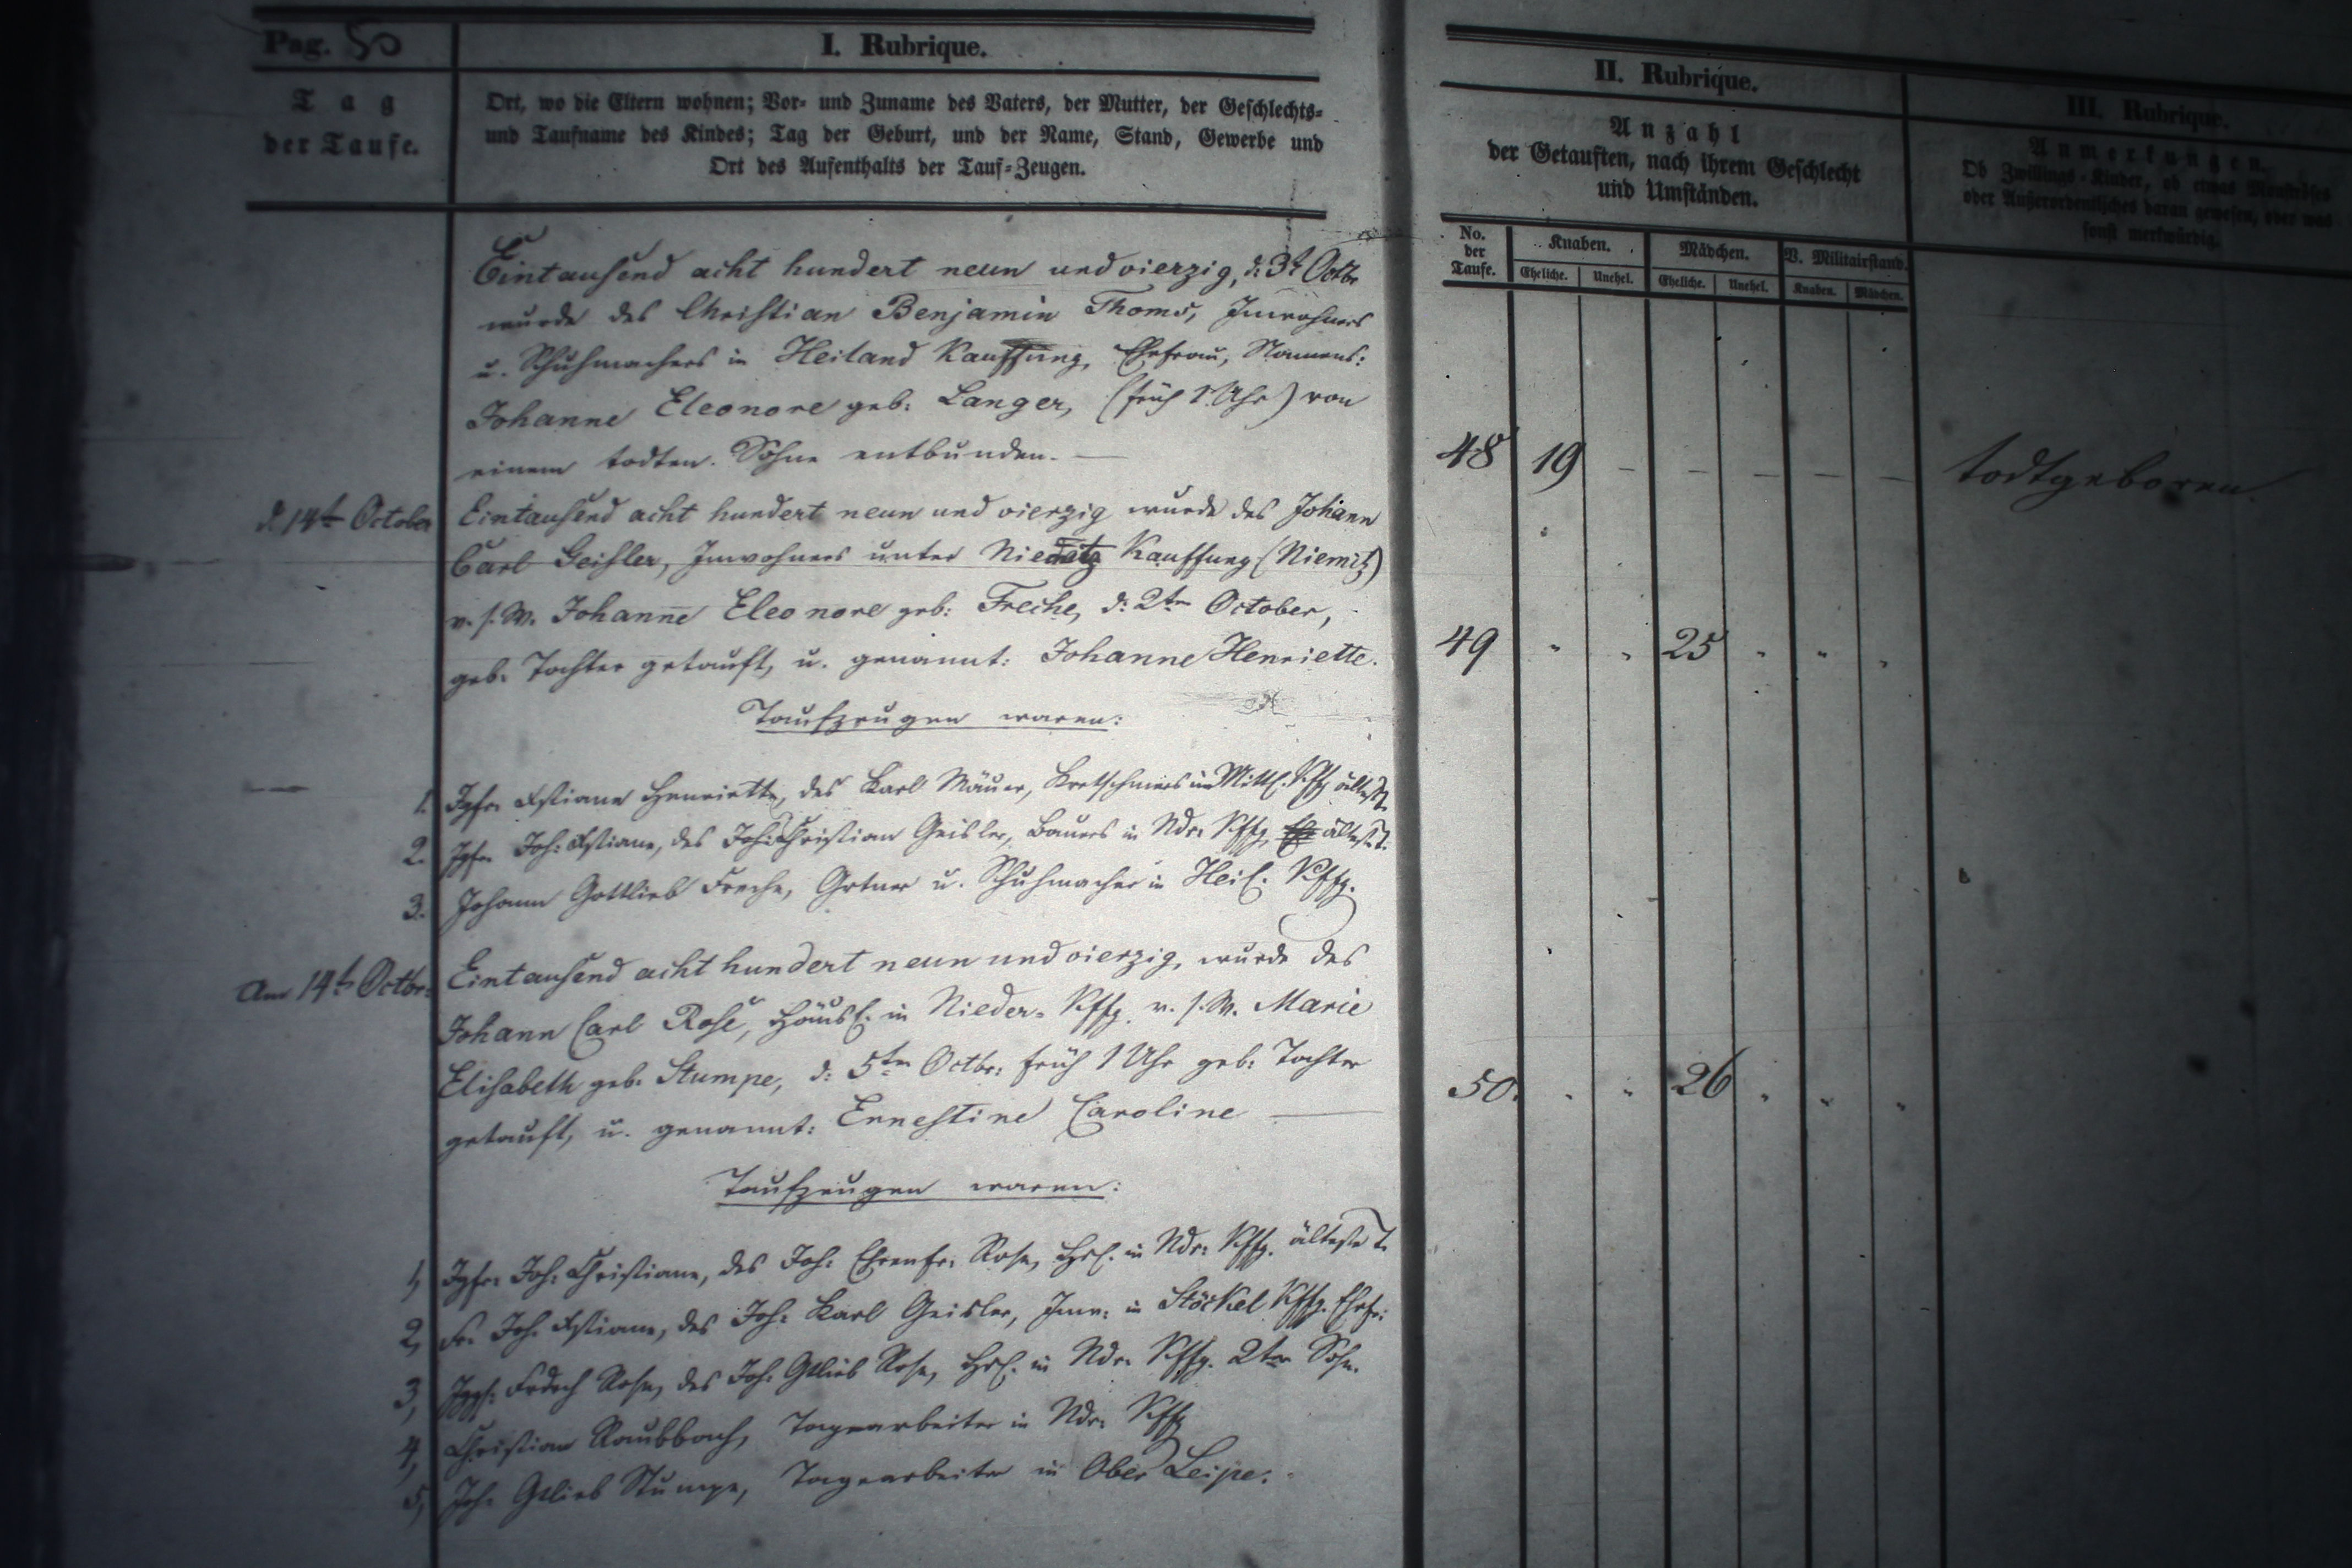 Pag. 50
I. Rubrique.
Tag
der Taufe.
Ort, wo die Eltern wohnen; Vor- und Zuname des Vaters, der Mutter, der Geschlechts-
und Taufname des Kindes; Tag der Geburt, und der Name, Stand, Gewerbe und
Ort des Aufenthalts der Tauf-Zeugen.
II. Rubrique.
Anzahl
der Getauften, nach ihrem Geschlecht
und Umständen.
III. Rubrique.
Anmerkungen.
Ob Zwillings-Kinder, ob etwas Monströses
oder Außerordentliches daran gewesen, oder was
sonst merkwürdig.
No.
der
Taufe.
Knaben.
Mädchen.
V. Militairstand.
Eheliche. Unehel. Eheliche. Unehel. Knaben. Mädchen.
Eintausend acht hundert neun und vierzig, d: 3t Octbr
wurde des Christian Benjamin Thoms, Inwohners
u. Schuhmachers in Heiland Kauffung, Ehefrau, Namens:
Johanne Eleonore geb: Langer, (früh 1 Uhr) von
einem todten Sohne entbunden. —
48 19 – – – – – todtgeboren.
d. 14t October
Eintausend acht hundert neun und vierzig wurde des Johann
Carl Geisler, Inwohners unter Kauffung (Niemitz)
v. s. W. Johanne Eleonore geb: Freche, d: 2ten October,
geb. Tochter getauft, u. genannt: Johanne Henriette.
49 " " 25 " " "
Taufzeugen waren:
1. Jgfr. Xstiane Henriette, des Karl Mäuer, Kretschmers im Mittl. Kffg ältest. T.
2. Jgfr. Joh: Xstiane, des Joh: Christian Geisler, Bauers in Ndr: Kffg, ältest. T.
3. Johann Gottlieb Freche, Grtner u. Schuhmacher in Heil. Kffg.
Am 14t Octbr:
Eintausend acht hundert neun und vierzig, wurde des
Johann Carl Rose, Häusl. in Nieder-Kffg. v. s. W. Marie
Elisabeth geb. Stumpe, d: 5ten Octbr: früh 1 Uhr geb: Tochter
getauft, u. genannt: Ernestine Caroline —
50. " " 26 " " "
Taufzeugen waren:
1, Jgfr: Joh: Christiane, des Joh: Ehrenfr: Rose, Hsl. in Ndr: Kffg. älteste T.
2, Fr. Joh. Xstiane, des Joh: Karl Geisler, Inw: in Stöckel Kffg. Ehefr:
3, Jggs: Frdrch Rose, des Joh: Gtlieb Rose, Hsl. in Ndr. Kffg. 2ter Sohn.
4, Christian Raubbach, Tagearbeiter in Ndr: Kffg
5, Joh: Gtlieb Stumpe, Tagearbeiter in Ober Leipe.